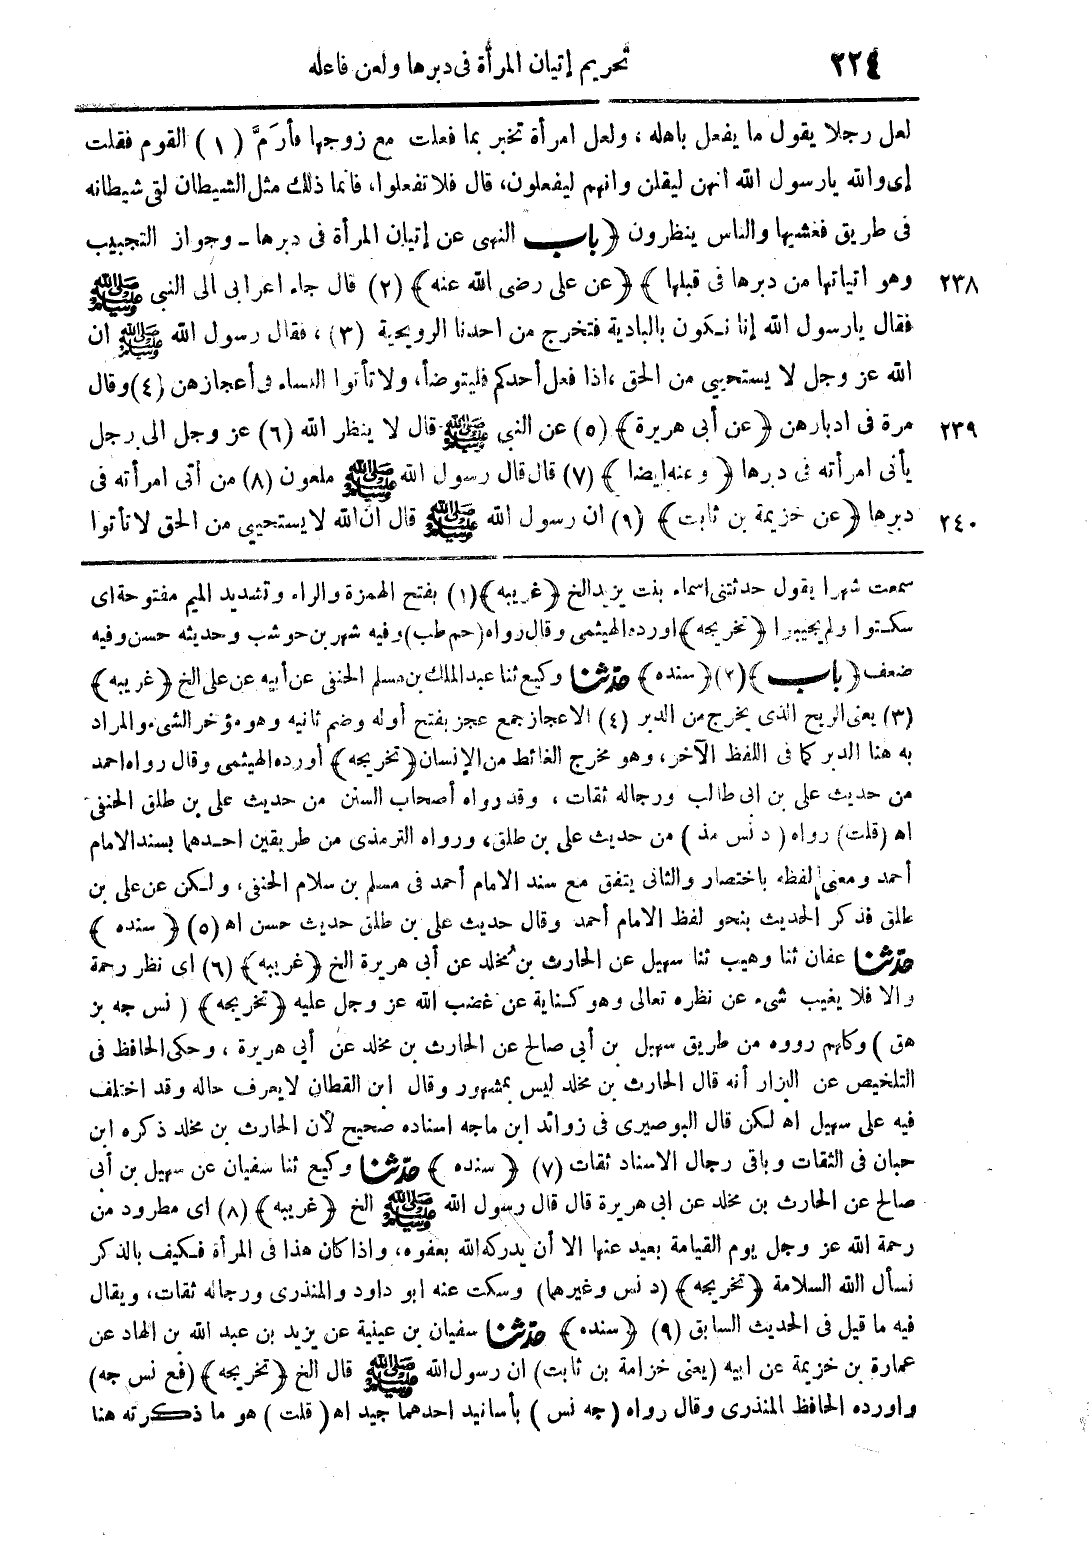 ٢٢٤ تحريم إتيان المرأة فى دبرها ولعن فاعله
لعل رجلا يقول ما يفعل باهله ، ولعل امرأة تخبر بما فعلت مع زوجها فأرَمَّ (١) القوم فقلت
إى والله يارسول الله انهن ليقلن وانهم ليفعلون، قال فلا تفعلوا، فانما ذلك مثل الشيطان لقى شيطانه
فى طريق فغشيها والناس ينظرون ﴿ باب النهى عن إتيان المرأة فى دبرها ـ وجواز التجبيب
٢٣٨ وهو اتيانها من دبرها فى قبلها ﴾ ﴿ عن على رضى الله عنه ﴾ (٢) قال جاء اعرابى الى النبى ﷺ
فقال يارسول الله إنا نكون بالبادية فتخرج من احدنا الرويحية (٣) ، فقال رسول الله ﷺ ان
الله عز وجل لا يستحيى من الحق ، اذا فعل أحدكم فليتوضأ، ولا تأتوا النساء فى أعجازهن (٤) وقال
٢٣٩ مرة فى ادبارهن ﴿ عن أبى هريرة ﴾ (٥) عن النبى ﷺ قال لا ينظر الله (٦) عز وجل الى رجل
يأتى امرأته فى دبرها ﴿ وعنه ايضا ﴾ (٧) قال قال رسول الله ﷺ ملعون (٨) من أتى امرأته فى
٢٤٠ دبرها ﴿ عن خزيمة بن ثابت ﴾ (٩) ان رسول الله ﷺ قال ان الله لا يستحيى من الحق لا تأتوا
سمعت شهرا يقول حدثتنى اسماء بنت يزيد الخ ﴿ غريبه ﴾ (١) بفتح الهمزة والراء وتشديد الميم مفتوحة اى
سكتوا ولم يجيبوا ﴿ تخريجه ﴾ اورده الهيثمى وقال رواه (حم طب) وفيه شهر بن حوشب وحديثه حسن وفيه
ضعف ﴿ باب ﴾ (٢) ﴿ سنده ﴾ حدثنا وكيع ثنا عبد الملك بن مسلم الحنفى عن أبيه عن على الخ ﴿ غريبه ﴾
(٣) يعنى الريح الذى يخرج من الدبر (٤) الاعجاز جمع عجز بفتح أوله وضم ثانيه وهو مؤخر الشىء والمراد
به هنا الدبر كما فى اللفظ الآخر، وهو مخرج الغائط من الإنسان ﴿ تخريجه ﴾ أورده الهيثمى وقال رواه احمد
من حديث على بن ابى طالب ورجاله ثقات ، وقد رواه أصحاب السنن من حديث على بن طلق الحنفى
اه (قلت) رواه ( د نس مذ ) من حديث على بن طلق، ورواه الترمذى من طريقين احدها بسند الامام
أحمد ومعنى لفظه باختصار والثانى يتفق مع سند الامام أحمد فى مسلم بن سلام الحنفى، ولكن عن على بن
طلق فذكر الحديث بنحو لفظ الامام أحمد وقال حديث على بن طلق حديث حسن اه (٥) ﴿ سنده ﴾
حدثنا عفان ثنا وهيب ثنا سهيل عن الحارث بن مُخلد عن أبى هريرة الخ ﴿ غريبه ﴾ (٦) اى نظر رحمة
والا فلا يغيب شىء عن نظره تعالى وهو كناية عن غضب الله عز وجل عليه ﴿ تخريجه ﴾ ( نس جه بز
هق ) وكلهم رووه من طريق سهيل بن أبى صالح عن الحارث بن مخلد عن أبى هريرة ، وحكى الحافظ فى
التلخيص عن البزار أنه قال الحارث بن مخلد ليس بمشهور وقال ابن القطان لا يعرف حاله وقد اختلف
فيه على سهيل اه لكن قال البوصيرى فى زوائد ابن ماجه اسناده صحيح لأن الحارث بن مخلد ذكره ابن
حبان فى الثقات وباقى رجال الاسناد ثقات (٧) ﴿ سنده ﴾ حدثنا وكيع ثنا سفيان عن سهيل بن أبى
صالح عن الحارث بن مخلد عن ابى هريرة قال قال رسول الله ﷺ الخ ﴿ غريبه ﴾ (٨) اى مطرود من
رحمة الله عز وجل يوم القيامة بعيد عنها الا أن يدركه الله بعفوه، واذا كان هذا فى المرأة فكيف بالذكر
نسأل الله السلامة ﴿ تخريجه ﴾ (د نس وغيرها) وسكت عنه ابو داود والمنذرى ورجاله ثقات، ويقال
فيه ما قيل فى الحديث السابق (٩) ﴿ سنده ﴾ حدثنا سفيان بن عيينة عن يزيد بن عبد الله بن الهاد عن
عمارة بن خزيمة عن ابيه (يعنى خزامة بن ثابت) ان رسول الله ﷺ قال الخ ﴿ تخريجه ﴾ (فع نس جه)
واورده الحافظ المنذرى وقال رواه ( جه نس ) بأسانيد احدهما جيد اه ( قلت ) هو ما ذكرته هنا